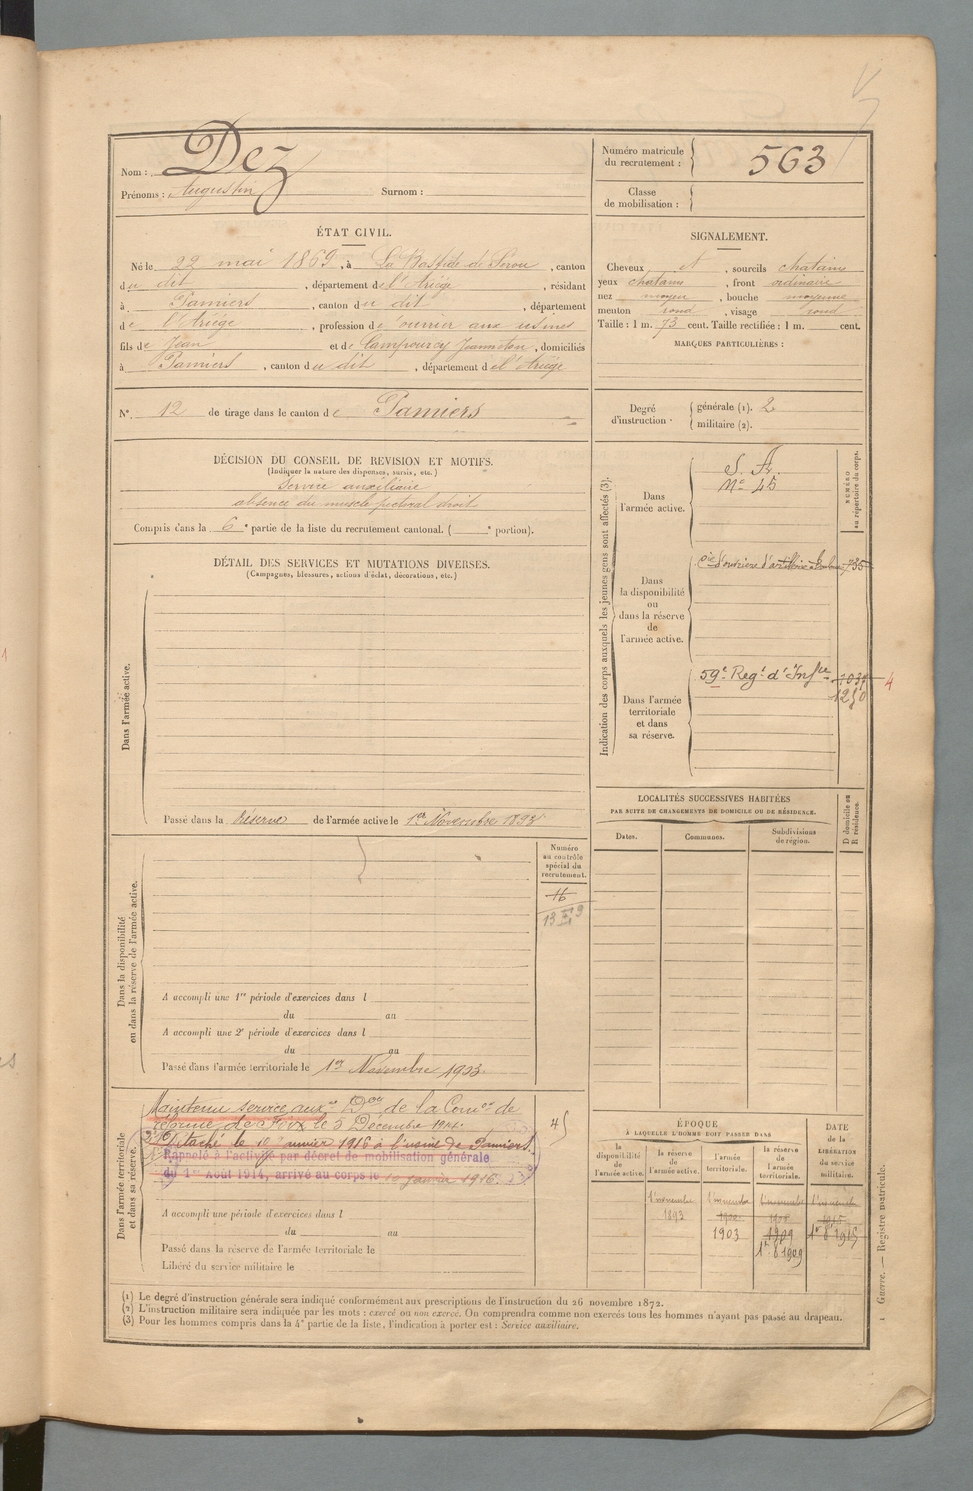 Nom : Dez
Prénoms : Augustin Surnom :
Numéro matricule du recrutement : 563
Classe de mobilisation :
ÉTAT CIVIL.
Né le 22 mai 1869, à La Bastide de Sérou, canton
du dit, département de l'Ariège, résidant
à Pamiers, canton du dit, département
de l'Ariège, profession de ouvrier aux usines
fils de Jean et de Jeanneton, domiciliés
à Pamiers, canton du dit, département de l'Ariège
N° 12 de tirage dans le canton de Pamiers
SIGNALEMENT.
Cheveux et, sourcils chatains
yeux chatains, front ordinaire
nez moyen, bouche moyenne
menton rond, visage rond
Taille : 1 m. 73 cent. Taille rectifiée : 1 m. cent.
MARQUES PARTICULIÈRES :
Degré d'instruction : générale (1). 2
militaire (2).
DÉCISION DU CONSEIL DE REVISION ET MOTIFS.
(Indiquer la nature des dispenses, sursis, etc.)
Service auxiliaire
absence du muscle pectoral droit
Compris dans la 6e partie de la liste du recrutement cantonal. ( e portion).
DÉTAIL DES SERVICES ET MUTATIONS DIVERSES.
(Campagnes, blessures, actions d'éclat, décorations, etc.)
Dans l'armée active.
Passé dans la réserve de l'armée active le 1er Novembre 1893
Indication des corps auxquels les jeunes gens sont affectés (3).
NUMÉRO au répertoire du corps.
Dans l'armée active.
S. A.
N° 45
Dans la disponibilité ou dans la réserve de l'armée active.
Cie d'ouvriers d'artillerie 735
Dans l'armée territoriale et dans sa réserve.
59e Regt d'Infie
4
LOCALITÉS SUCCESSIVES HABITÉES
PAR SUITE DE CHANGEMENTS DE DOMICILE OU DE RÉSIDENCE.
D domicile ou R résidence.
Dates. Communes. Subdivisions de région.
Dans la disponibilité ou dans la réserve de l'armée active.
Numéro au contrôle spécial du recrutement.
16
A accompli une 1re période d'exercices dans l
du au
A accompli une 2e période d'exercices dans l
du au
Passé dans l'armée territoriale le 1er Novembre 1903
Dans l'armée territoriale et dans sa réserve.
Maintenu service auxre Don de la Comon de
réforme de Foix le 5 Décembre 1914.
Détaché le 10 Janvier 1916 à l'usine de Pamiers.
Rappelé à l'activité par décret de mobilisation générale
du 1er Août 1914, arrivé au corps le 10 janvier 1916.
45
A accompli une période d'exercices dans l
du au
Passé dans la réserve de l'armée territoriale le
Libéré du service militaire le
ÉPOQUE
À LAQUELLE L'HOMME DOIT PASSER DANS
DATE de la LIBÉRATION du service militaire.
la disponibilité de l'armée active.
la réserve de l'armée active.
l'armée territoriale.
la réserve de l'armée territoriale.
1893
1903
1909
1r 8 1909
1r 8 1915
(1) Le degré d'instruction générale sera indiqué conformément aux prescriptions de l'instruction du 26 novembre 1872.
(2) L'instruction militaire sera indiquée par les mots : exercé ou non exercé. On comprendra comme non exercés tous les hommes n'ayant pas passé au drapeau.
(3) Pour les hommes compris dans la 4e partie de la liste, l'indication à porter est : Service auxiliaire.
1 Guerre. — Registre matricule.